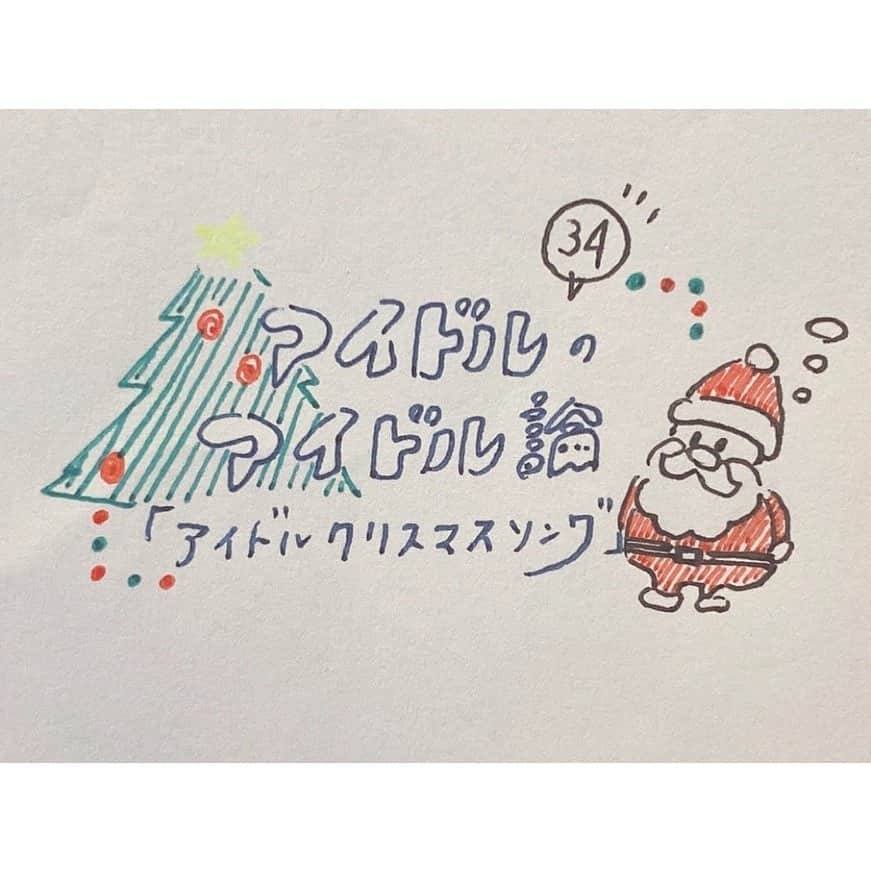 34
アイドルの
アイドル論
「アイドルクリスマスソング」